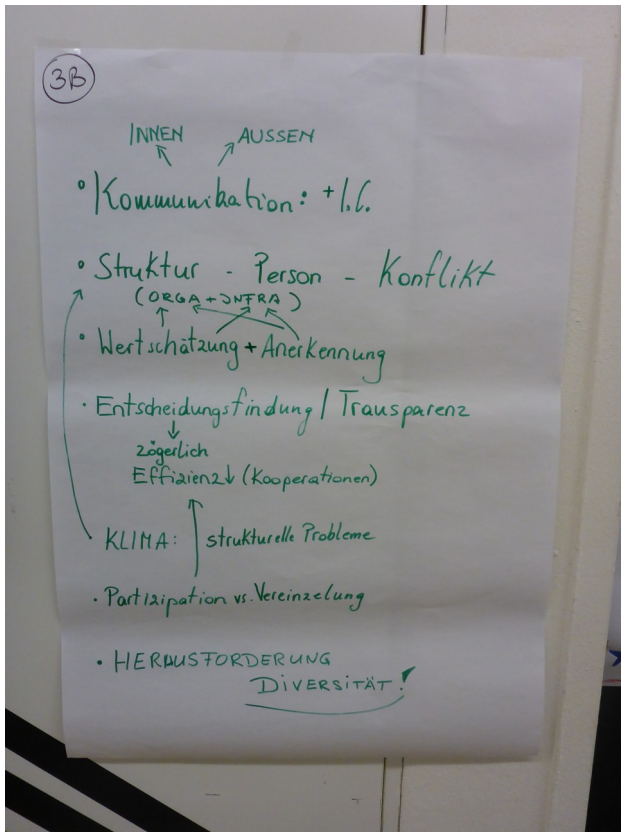 3B
INNEN AUSSEN
Kommunikation: + I.C.
Struktur - Person - Konflikt
(ORGA + INFRA)
Wertschätzung + Anerkennung
Entscheidungsfindung / Transparenz
zögerlich
Effizienz↓ (Kooperationen)
KLIMA: strukturelle Probleme
Partizipation vs. Vereinzelung
HERAUSFORDERUNG
DIVERSITÄT!